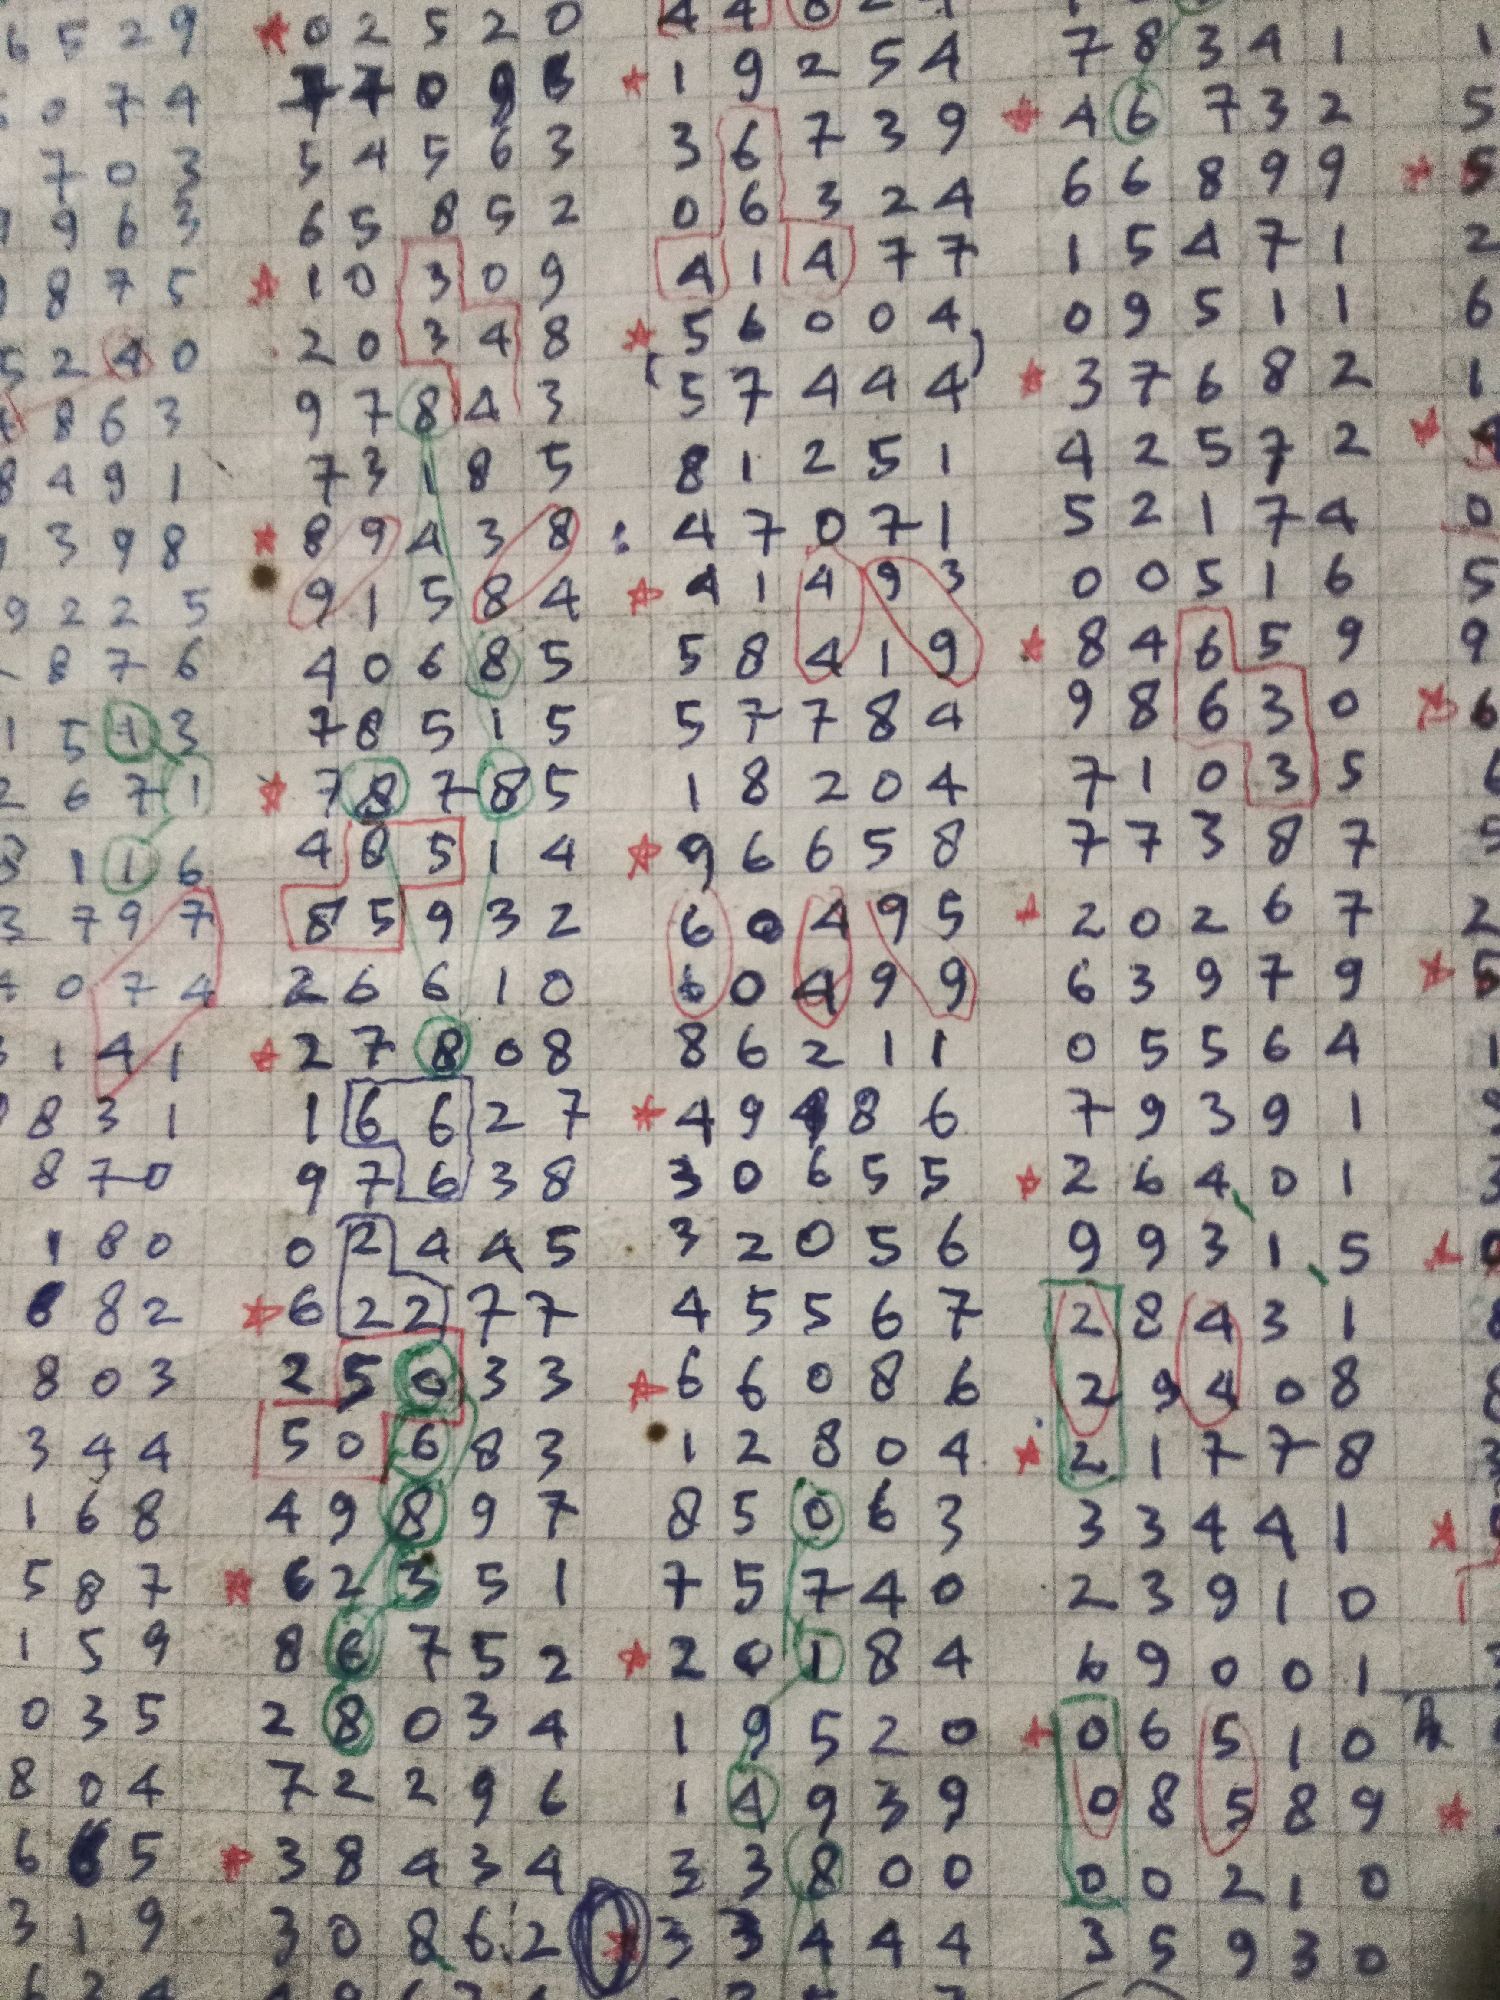 6 5 2 9
0 7 4
7 0 3
9 6 3
8 7 5
5 2 4 0
8 6 3
8 4 9 1
3 9 8
9 2 2 5
8 7 6
1 5 1 3
2 6 7 1
1 1 6
3 7 9 7
0 7 4
1 4 1
8 3 1
8 7 0
1 8 0
6 8 2
8 0 3
3 4 4
1 6 8
5 8 7
1 5 9
0 3 5
8 0 4
6 6 5
3 1 9
0 2 5 2 0
7 7 0 9 6
5 4 5 6 3
6 5 8 5 2
1 0 3 0 9
2 0 3 4 8
9 7 8 4 3
7 3 1 8 5
8 9 4 3 8
9 1 5 8 4
4 0 6 8 5
7 8 5 1 5
7 8 7 8 5
4 8 5 1 4
8 5 9 3 2
2 6 6 1 0
2 7 8 0 8
1 6 6 2 7
9 7 6 3 8
0 2 4 4 5
6 2 2 7 7
2 5 0 3 3
5 0 6 8 3
4 9 8 9 7
6 2 3 5 1
8 6 7 5 2
2 8 0 3 4
7 2 2 9 6
3 8 4 3 4
3 0 8 6 2
1 9 2 5 4
3 6 7 3 9
0 6 3 2 4
4 1 4 7 7
5 6 0 0 4
(5 7 4 4 4)
8 1 2 5 1
4 7 0 7 1
4 1 4 9 3
5 8 4 1 9
5 7 7 8 4
1 8 2 0 4
9 6 6 5 8
6 0 4 9 5
6 0 4 9 9
8 6 2 1 1
4 9 4 8 6
3 0 6 5 5
3 2 0 5 6
4 5 5 6 7
6 6 0 8 6
1 2 8 0 4
8 5 0 6 3
7 5 7 4 0
2 0 1 8 4
1 9 5 2 0
1 4 9 3 9
3 3 8 0 0
3 3 4 4 4
7 8 3 4 1
4 6 7 3 2
6 6 8 9 9
1 5 4 7 1
0 9 5 1 1
3 7 6 8 2
4 2 5 7 2
5 2 1 7 4
0 0 5 1 6
8 4 6 5 9
9 8 6 3 0
7 1 0 3 5
7 7 3 8 7
2 0 2 6 7
6 3 9 7 9
0 5 5 6 4
7 9 3 9 1
2 6 4 0 1
9 9 3 1 5
2 8 4 3 1
2 9 4 0 8
2 1 7 7 8
3 3 4 4 1
2 3 9 1 0
6 9 0 0 1
0 6 5 1 0
0 8 5 8 9
0 0 2 1 0
3 5 9 3 0
1
5
5
2
6
1
0
5
9
6
2
5
1